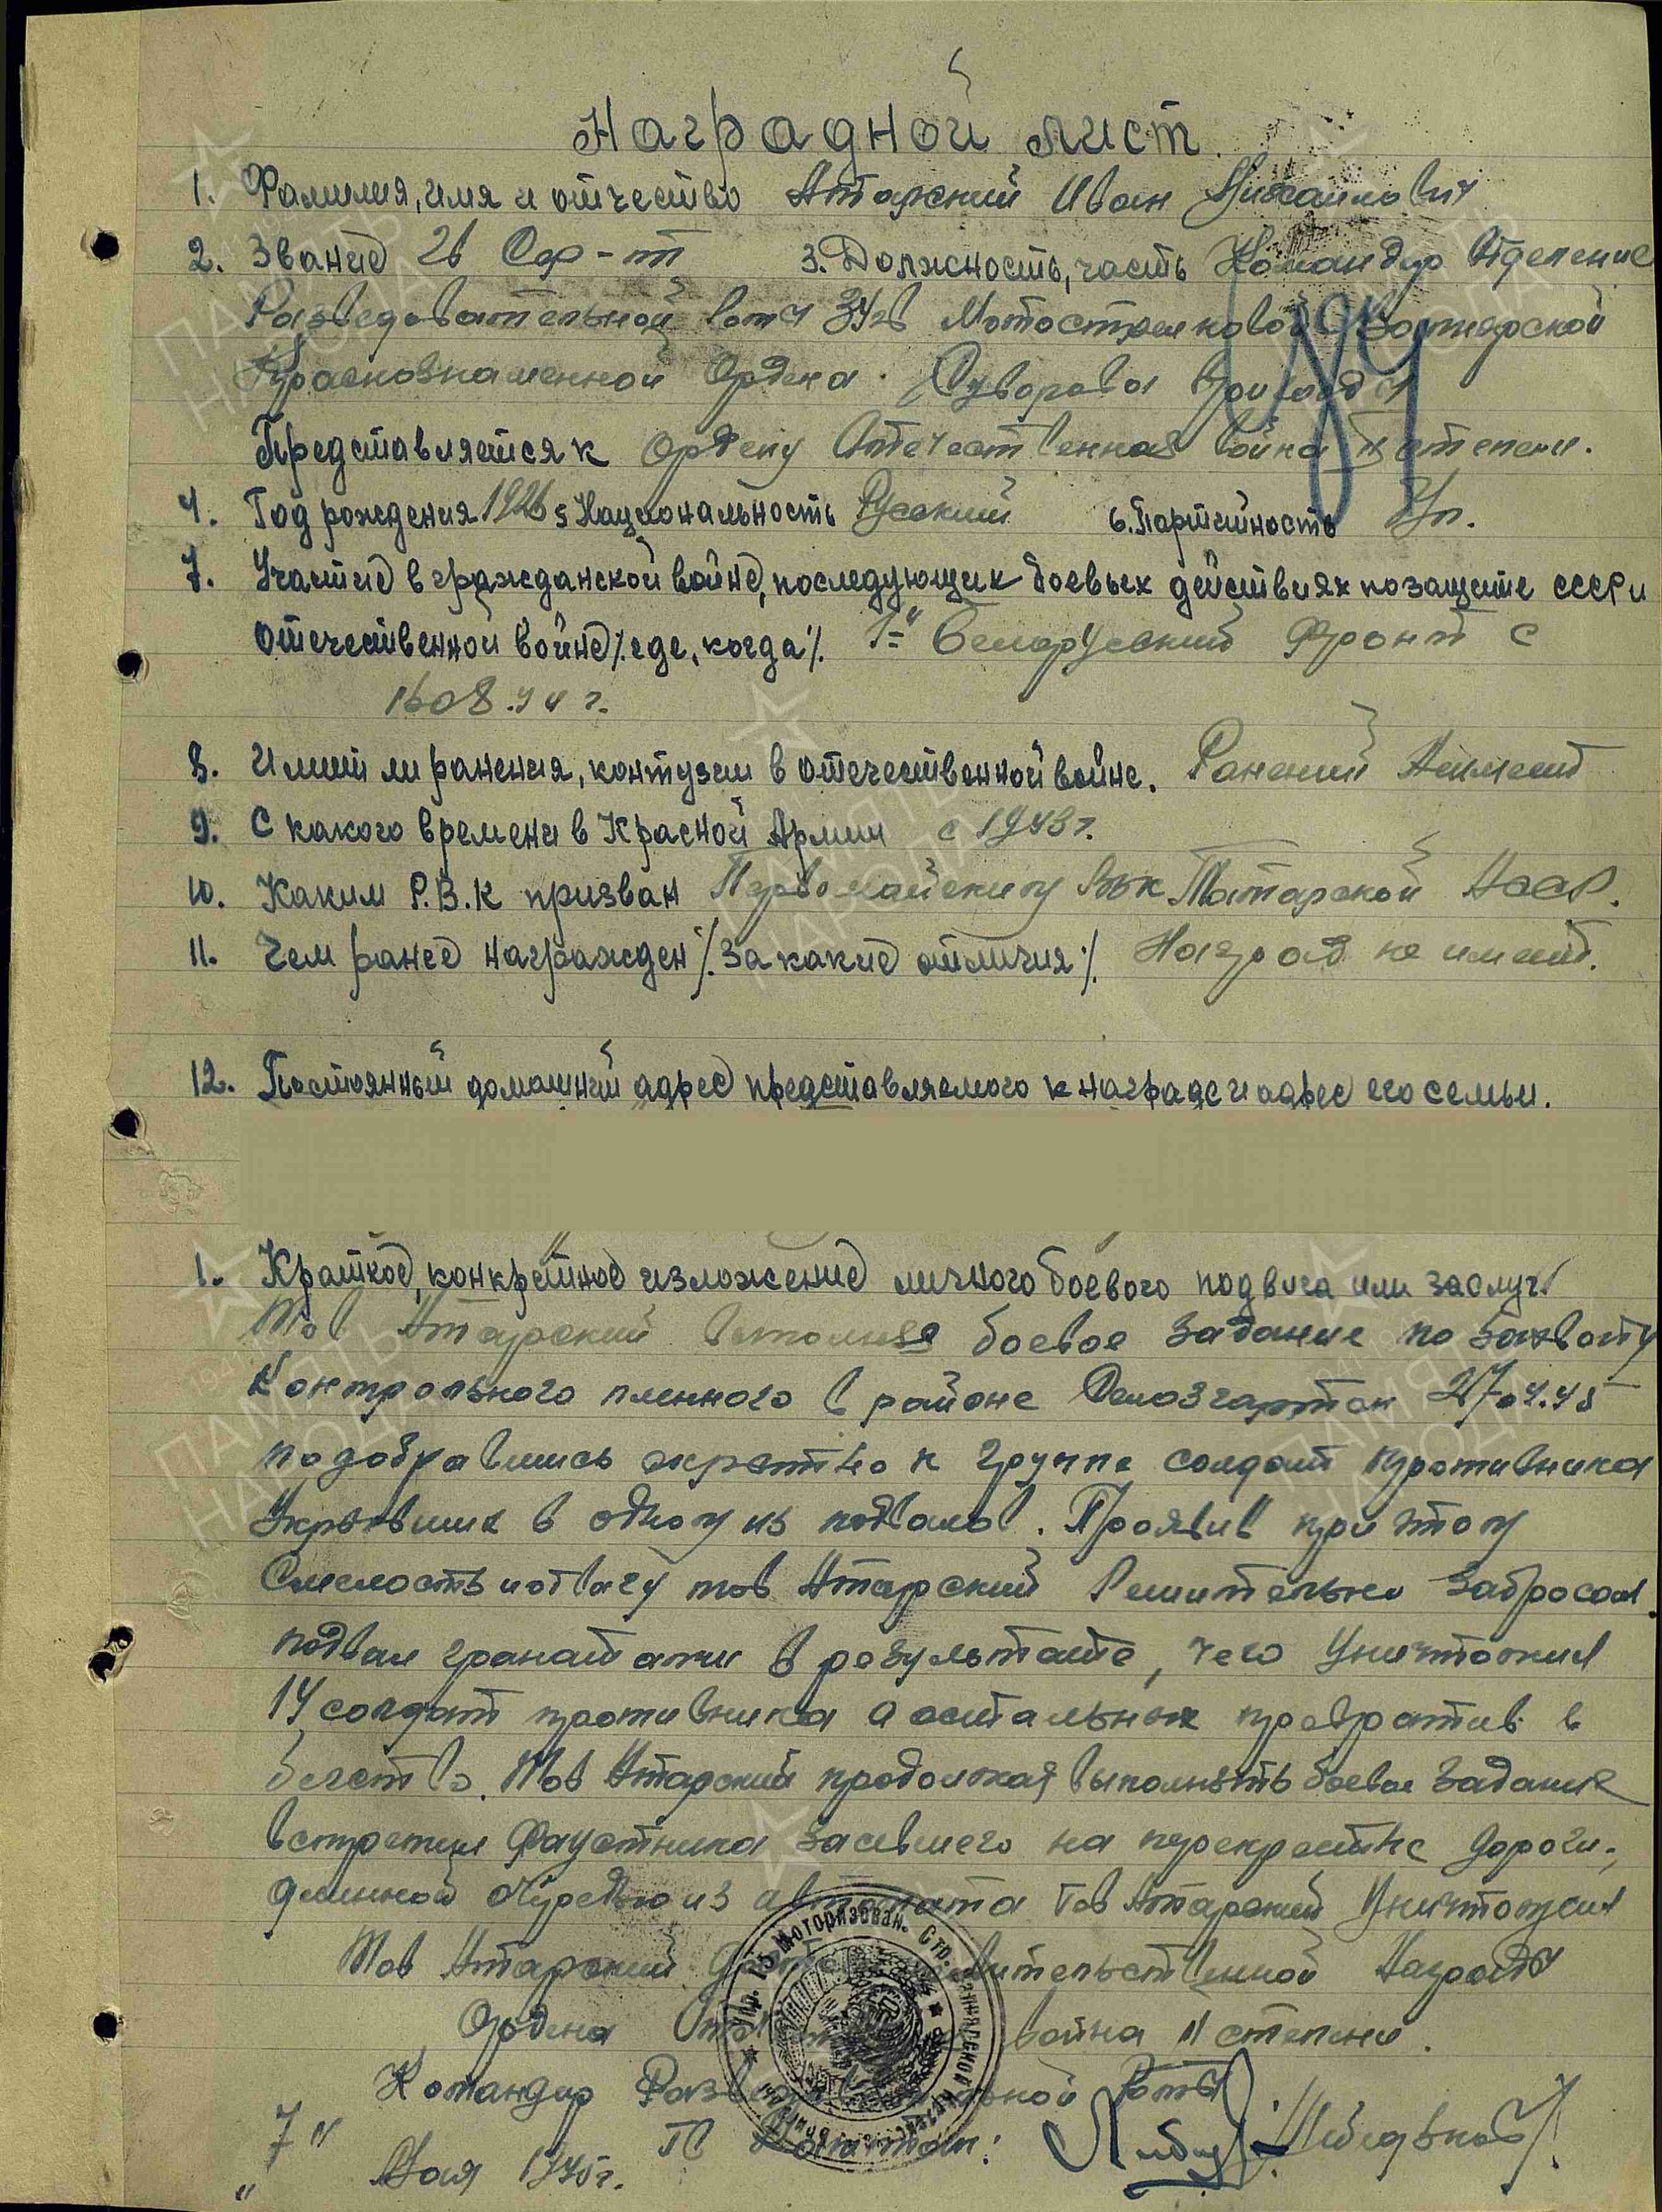 Наградной лист
1. Фамилия, имя и отчество Атарский Иван Михайлович
2. Звание Гв Серж-т 3. Должность, часть Командир Отделение
Разведовательной роты 34 гв Мотострелковой
Краснознаменной Ордена Суворова Бригады
Представляется к ордену Отечественная война II степени.
4. Год рождения 1926 5 Национальность Русский 6. Партийность
7. Участие в гражданской войне, последующих боевых действиях по защите СССР и
отечественной войне /. где, когда /. 1-й Белорусский Фронт с
16 08.44 г.
8. Имеет ли ранения, контузии в отечественной войне. Ранений Не имеет
9. С какого времени в Красной Армии с 1943 г.
10. Каким Р.В.К призван Первомайским Рвк Татарской АССР.
11. Чем ранее награжден /. за какие отличия /. Наград не имеет.
12. Постоянный домашний адрес представляемого к награде и адрес его семьи.
1. Краткое, конкретное изложение личного боевого подвига или заслуг.
Тов Атарский выполняя боевое задание по захвату
контрольного пленного в районе 27.04.45
подобравшись скрытно к группе солдат противника
Укрывших в одном из подвалов. Проявив при этом
Смелость и отвагу тов Атарский Решительно забросал
подвал гранатами в результате, чего Уничтожил
14 солдат противника а остальных превратив в
бегство. Тов Атарский продолжая выполнять боевое задание
встретил Фаустника засевшего на перекрестке дороги.,
длинной очередью из автомата тов Атарский Уничтожил
Тов Атарский правительственной Награды
Ордена война II степени.
Командир Разведовательной Роты
Гв Капитан:
"7"
Мая 1945 г.